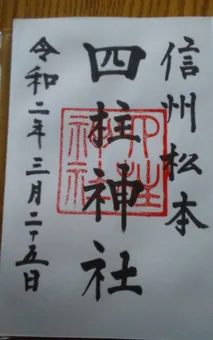 信州松本
四柱神社
令和二年三月二十五日
四柱神社